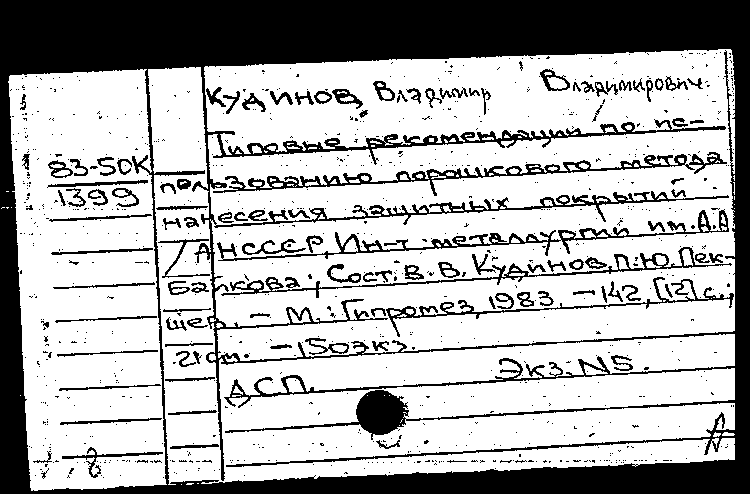 Кудинов Владимир Владимирович.
Типовые рекомендации по ис-
83-50К
пользованию порошкового метода
1399
нанесения защитных покрытий
/ АН СССР, Ин-т металлургии им. А.А.
Байкова; Сост. В.В. Кудинов, П.Ю. Пек-
шев. - М.: Гипромез, 1983. - 142, [12] с.;
21 см. - 150 экз.
ДСП. Экз. N5.
8